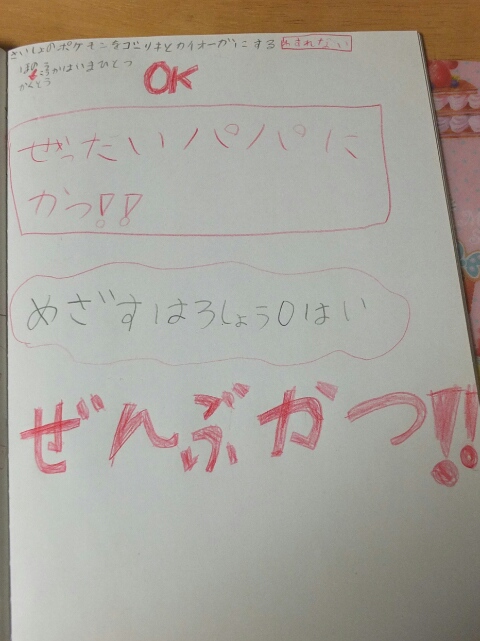 さいしょのポケモンをゴリラとカイオーガにする わすれない
ほのう
こうかはいまひとつ
かくとう
OK
ぜったいパパに
かつ!!
めざすは3しょう0はい
ぜんぶかつ!!